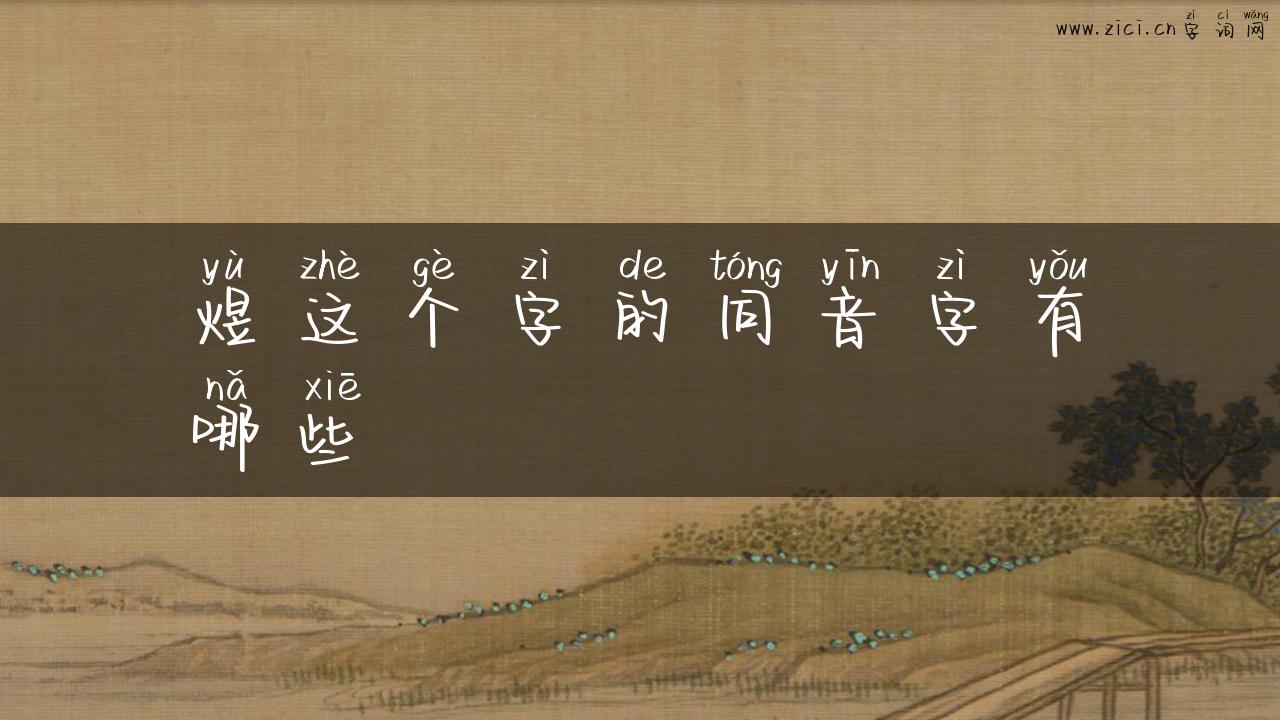 zì cí wǎng
www.zici.cn 字 词 网
yù zhè gè zì de tóng yīn zì yǒu
煜 这 个 字 的 同 音 字 有
nǎ xiē
哪 些